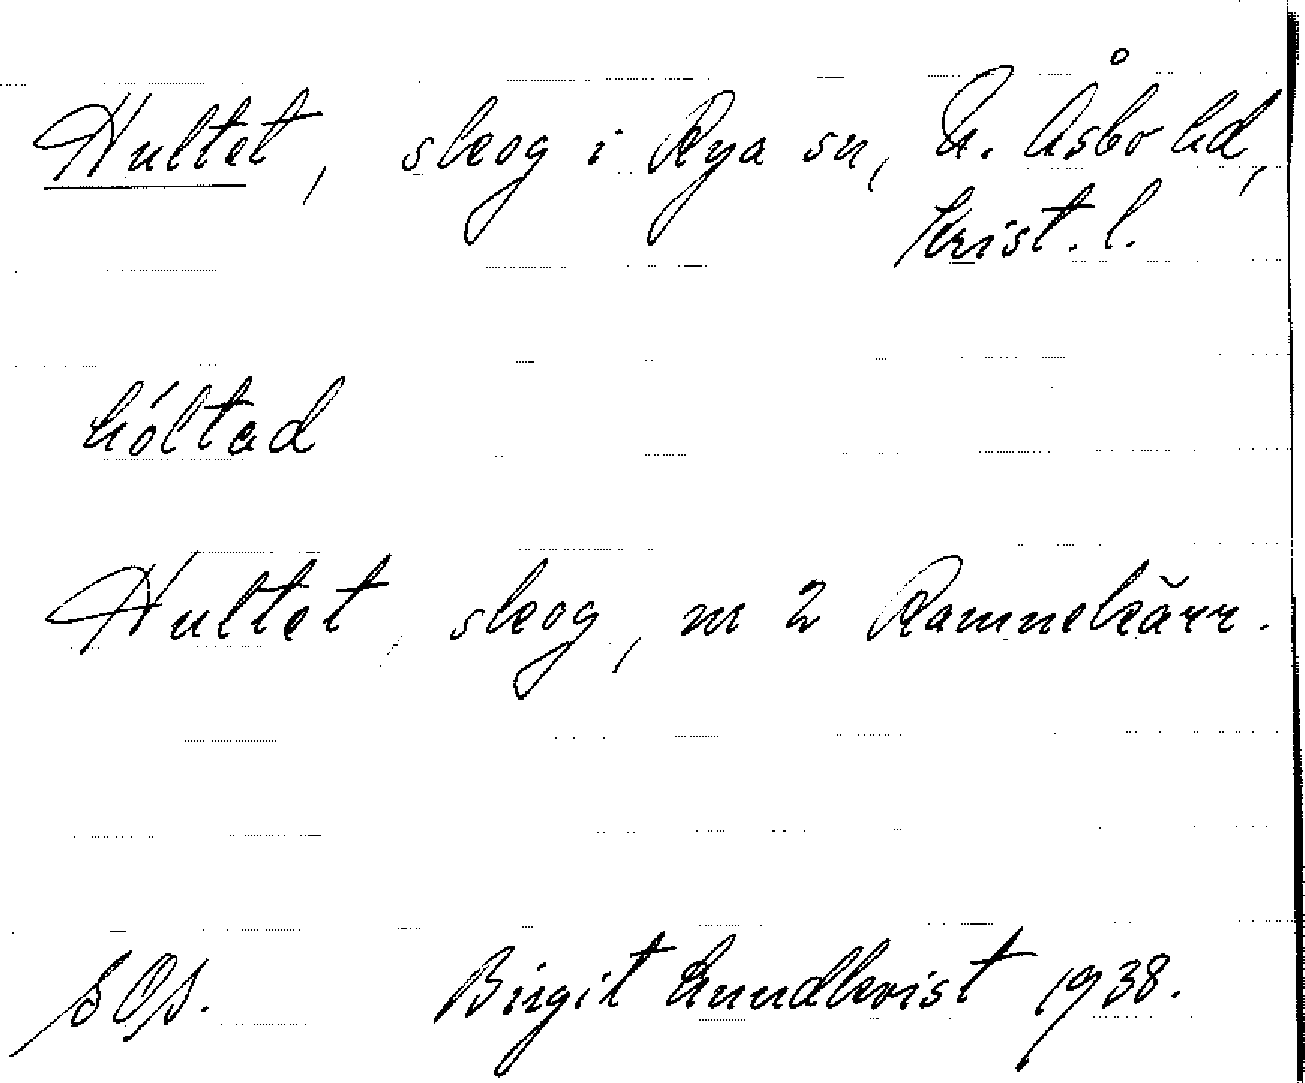 Hultet, skog i Rya sn, N. Åsbo hd,
Krist. l.
hóltad
Hultet, skog, m 2 Ramnekärr.
Birgit Lundkvist 1938.